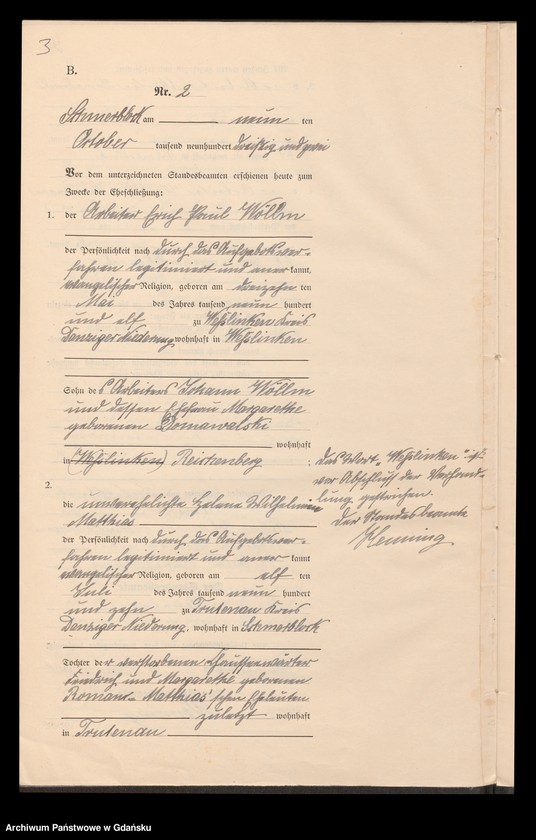 3
B.
Nr. 2
Schmerblock am neun ten
October tausend neunhundert dreißig und zwei
Vor dem unterzeichneten Standesbeamten erschienen heute zum
Zwecke der Eheschließung:
1. der Arbeiter Erich Paul Wöllm
der Persönlichkeit nach durch das Aufgebotsver-
fahren legitimiert und aner kannt,
evangelischer Religion, geboren am dreizehn ten
Mai des Jahres tausend neun hundert
und elf zu Weßlinken Kreis
Danziger Niederung wohnhaft in Weßlinken
Sohn des Arbeiters Johann Wöllm
und dessen Ehefrau Margarethe
geborenen
wohnhaft
in (Weßlinken) Reichenberg
das Wort "Weßlinken" ist
vor Abschluß der Verhand-
lung gestrichen.
Der Standesbeamte
Henning
2.
die unverehelichte Helene Wilhelmine
Matthias
der Persönlichkeit nach durch das Aufgebotsver-
fahren legitimiert und aner kannt
evangelischer Religion, geboren am elf ten
Juli des Jahres tausend neun hundert
und zehn zu Trutenau Kreis
Danziger Niederung, wohnhaft in Schmerblock
Tochter der verstorbenen Chausseewärter
Friedrich und Margarethe geborenen
Romans- Matthias'schen Eheleuten
zuletzt wohnhaft
in Trutenau
Archiwum Państwowe w Gdańsku